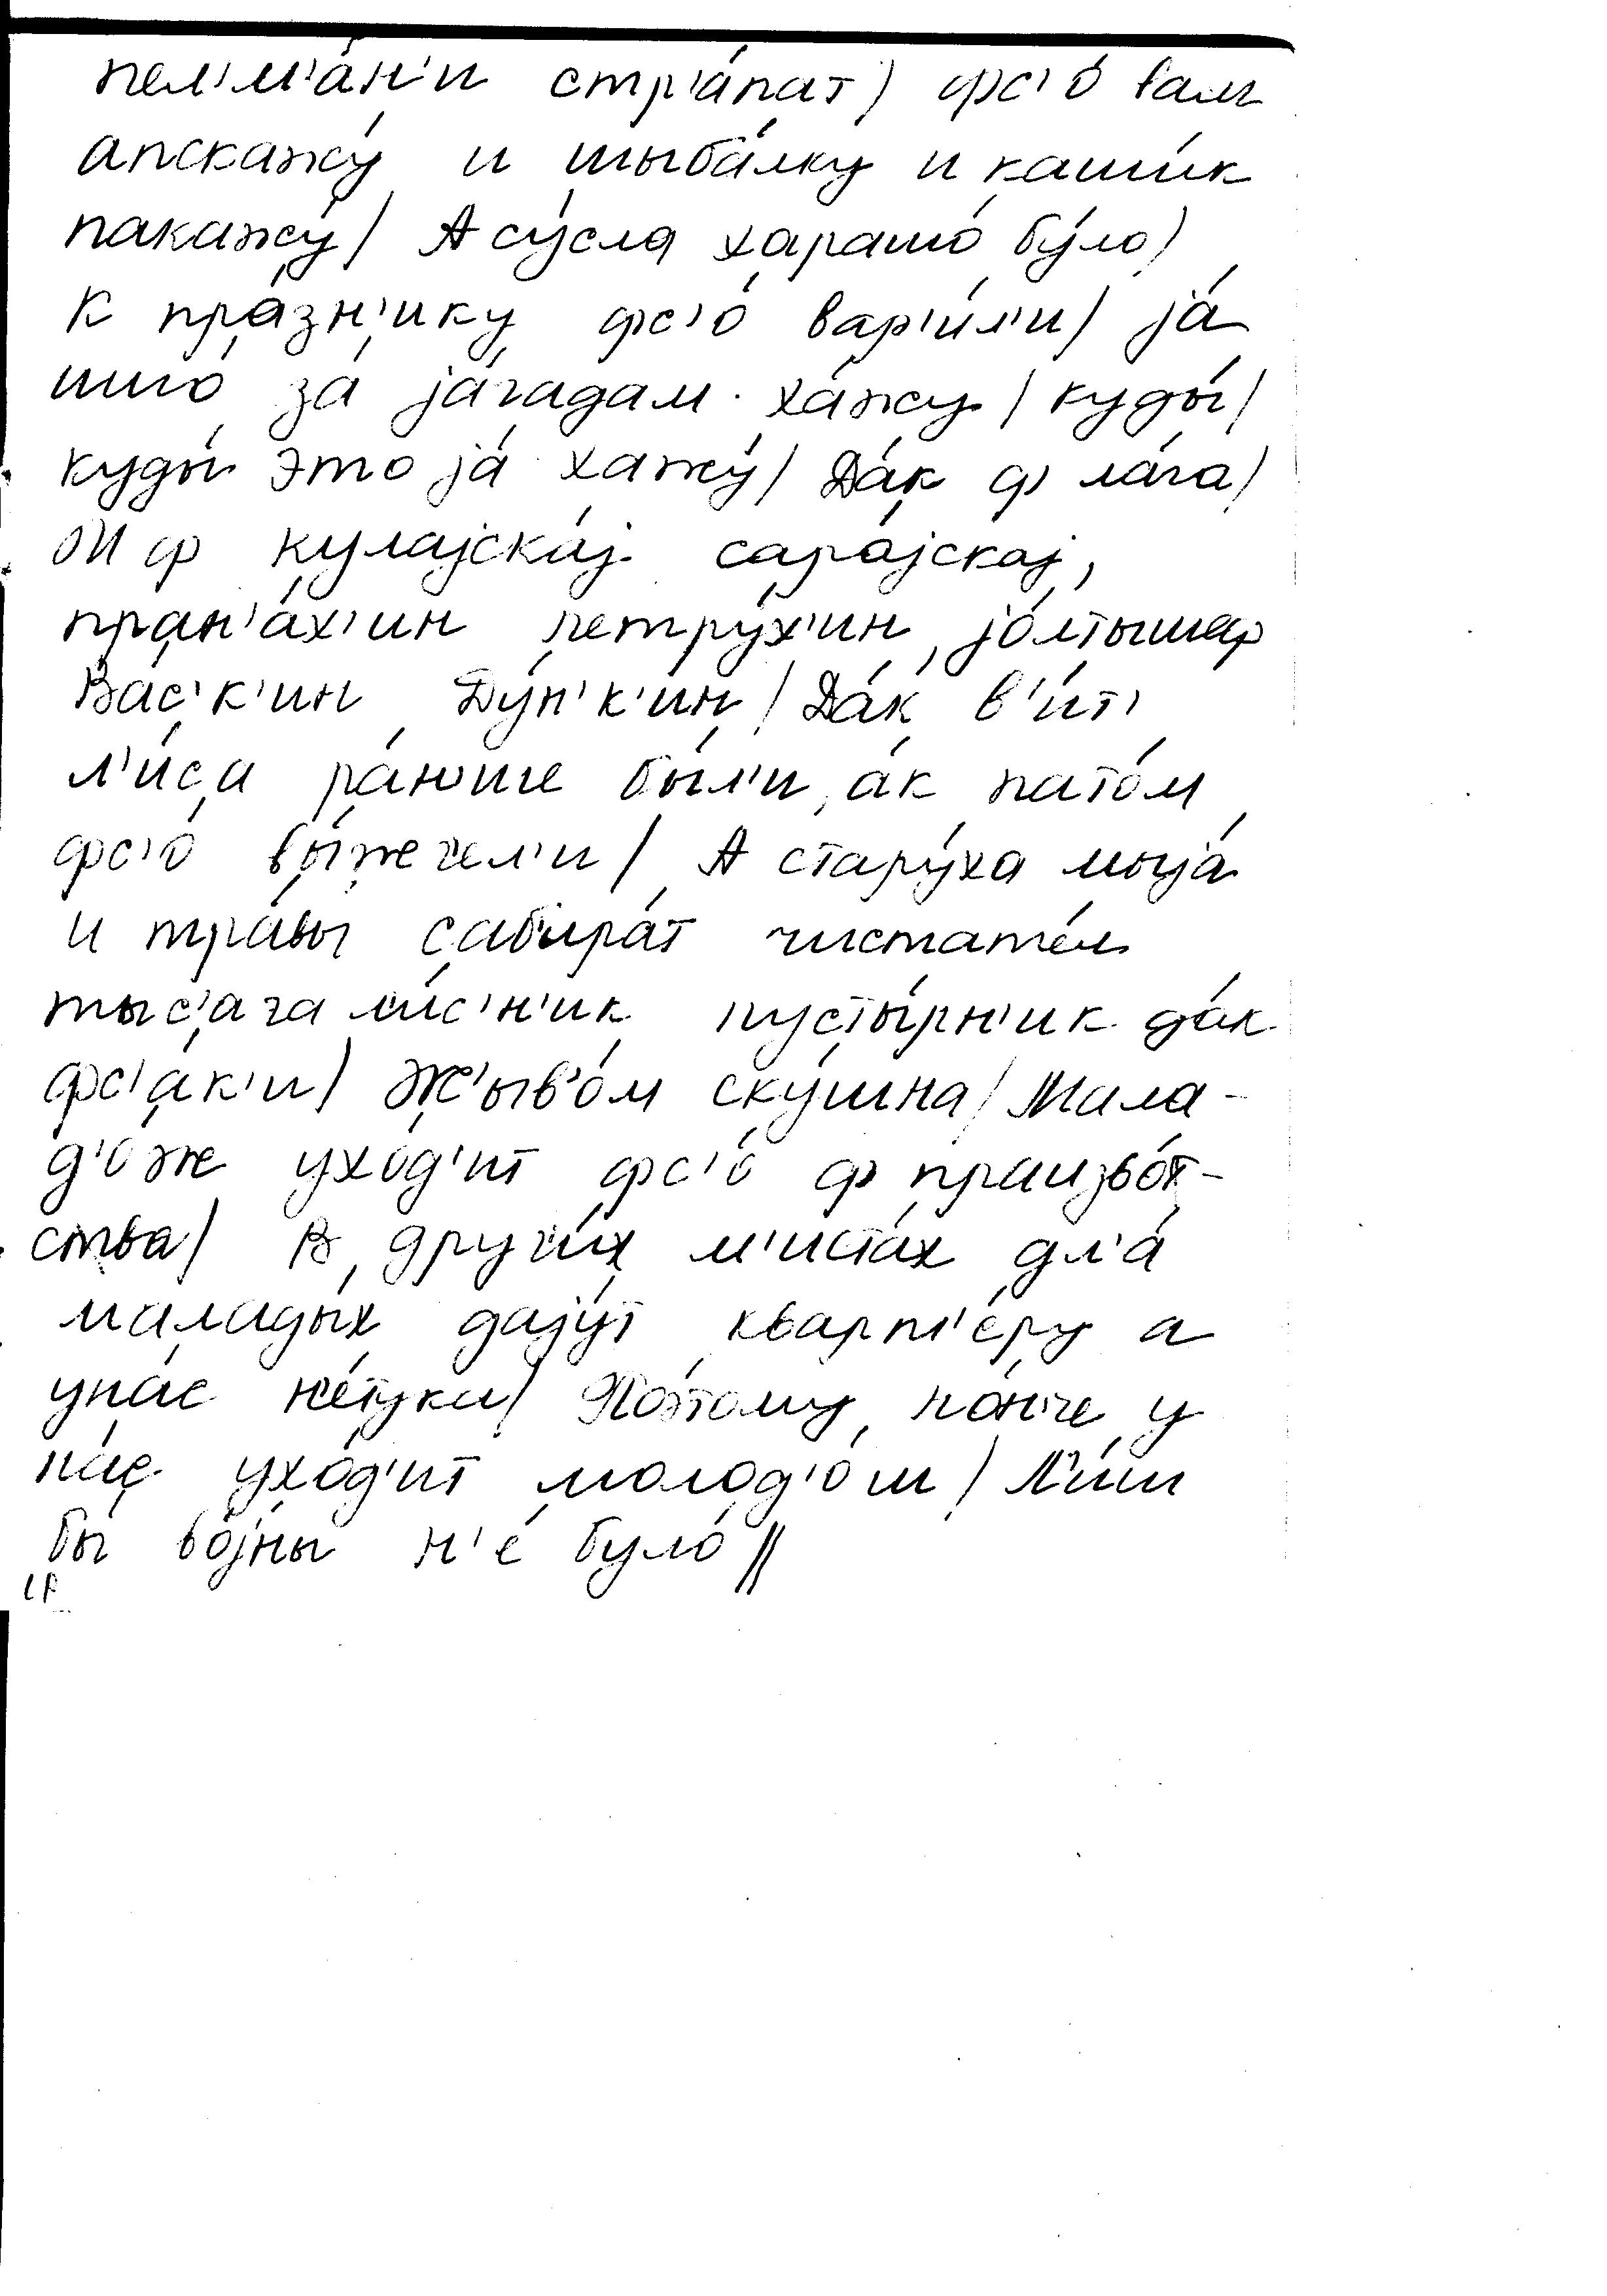 пел'м'а́н'и стр'а́пат/ фс'о́ вам
апскажу́ и шыба́лку и кашы́к
пакажу́/ А су́сла харашо́ бу́ло/
К пра́зн'ику фс'о́ вар'и́л'и/ jа́
ишо́ за́ jа́гадам ха́жу/ куды́/
куды́ э́то jа́ хажу́/ Да́к ф ла́га/
И ф кулаjска́j сара́jскаj,
пран'а́х'ин петру́х'ин jо́лтышеф
Ва́с'к'ин Ду́н'к'ин/ Да́к в'и́т'
л'иса́ ра́ньше бы́л'и, а́к пато́м
фс'о́ вы́жегел'и/ А стару́ха моjа́
и тра́вы сабира́т чистате́л
тыс'ага л'и́с'н'ик пусты́рн'ик да́к
фс'а́к'и/ Ж'ыв'о́м ску́шна/ Мала-
д'о́же ухо́д'ит фс'о́ ф праизво́т-
ства/ В други́х м'иста́х дл'а́
малады́х даjу́т кварт'е́ру а
у на́с не́туки/ По́тому но́нче у
на́с ухо́д'ит молод'о́ш/ Л'и́ш
бы́ во́jны н'е́ було́//